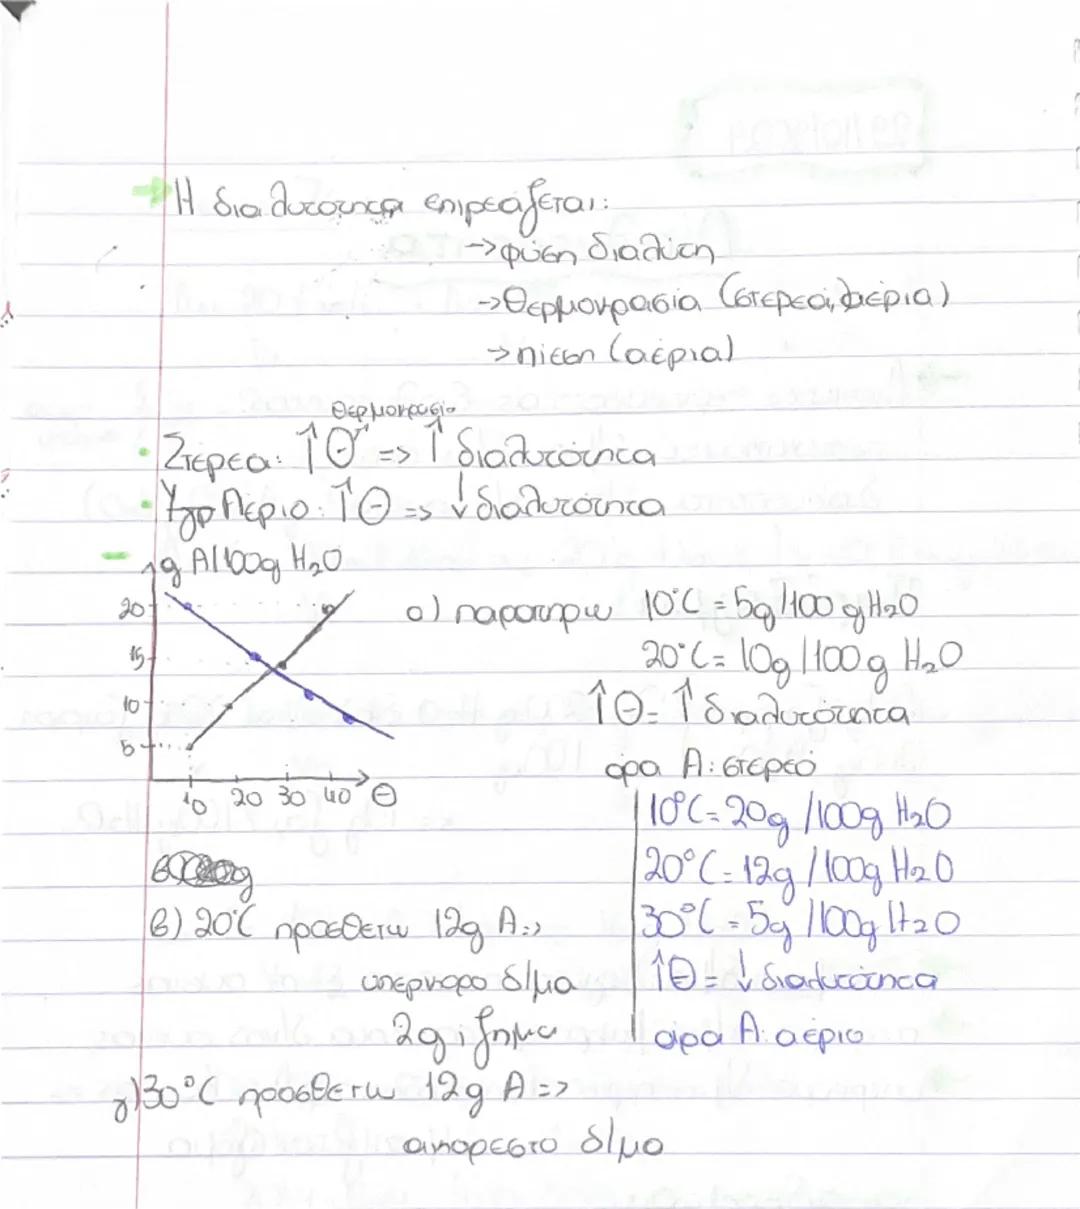 Η διαλυτότητα επιρεάζεται:
→ φύση διαλύτη
→ Θερμοκρασία (στερεά, αέρια)
→ πίεση (αέρια)
θερμοκρασία
• Στέρεα: ↑Θ => ↑ διαλυτότητα
• Αέριο: ↑Θ => ↓ διαλυτότητα
g A/100g H₂O
20
15
10
5
10 20 30 40 Θ
α) παρατηρω 10°C = 5g/100 gH₂O
20°C = 10g/100g H₂O
↑Θ = ↑ διαλυτότητα
άρα Α: στερεό
10°C = 20g /100g H₂O
20°C = 12g /100g H₂O
30°C = 5g /100g H₂O
↑Θ = ↓ διαλυτότητα
άρα Α: αέριο
β) 20°C προσθετω 12g A =>
υπερκορο δ/μα
2g ιζημα
γ) 30°C προσθετω 12g A =>
ακορεστο δ/μα